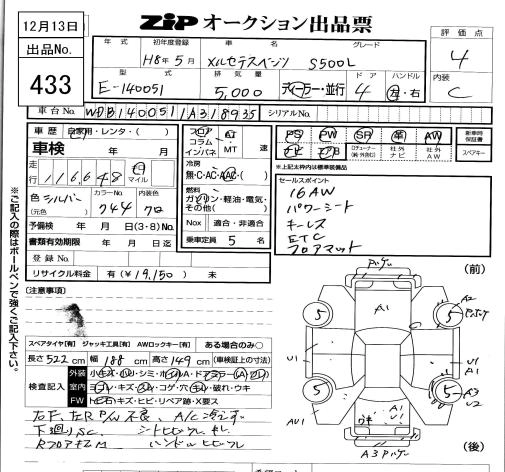 12月13日
ZiP オークション出品票
出品No.
433
年式 初年度登録 車名 グレード
H8年5月 メルセデスベンツ S500L
型式 排気量 ドア ハンドル
E-140051 5,000 ディーラー・並行 4 左・右
評価点
4
内装
C
車台No. WDB1400511A318935 シリアルNo.
車歴 自家用・レンタ・( )
車検 年 月
走行 116,648 マイル
色 シルバー (元色) カラーNo. 744 内装色 クロ
予備検 年 月 日(3・8)No.
書類有効期限 年 月 日迄
登録No.
リサイクル料金 有(¥19,150) 未
フロア コラム インパネ AT MT 速
冷房 無・C・AC・AAC・( )
燃料 ガソリン・軽油・電気・その他( )
Nox 適合・非適合
乗車定員 5 名
PS PW SR 革 AW
ナビ エアB 社外ナビ 社外AW
新車時保証書
スペアキー
※上記太枠内は標準装備品
セールスポイント
16AW
パワーシート
キーレス
ETC
フロアマット
※ご記入の際はボールペンで強くご記入下さい。
(注意事項)
スペアタイヤ[有] ジャッキ工具[有] AWロックキー[有] ある場合のみ○
長さ522cm 幅188cm 高さ149cm(車検証上の寸法)
検査記入
外装 小キズ・凹・シミ・
室内 ヨゴレ・キズ・スレ・コゲ・穴・キレ・破れ・ウキ
FW トビ石・キズ・ヒビ・リペア跡・X要ス
左F、左R P/W不良、A/C冷えず
下廻りSC、シートヒビワレ
ハンドルヒビワレ
(前)
A1
A2
5
5
U1
U1
A1
5
5
A3
U2
AU1
A1
U1
A3
(後)